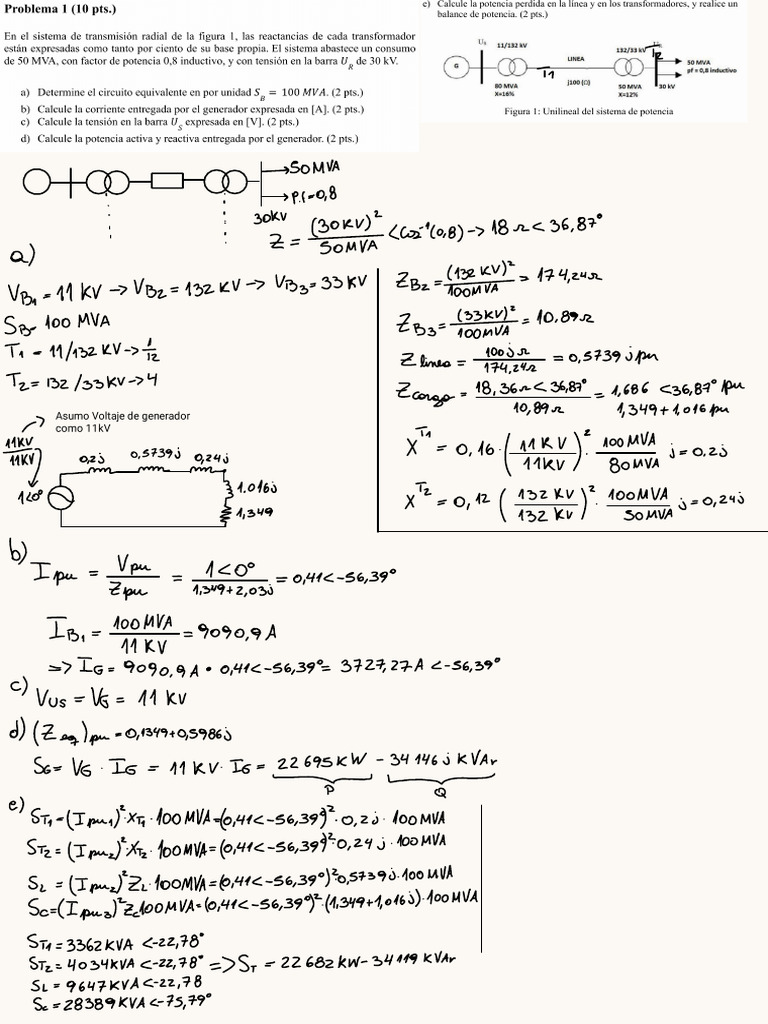 Problema 1 (10 pts.)
En el sistema de transmisión radial de la figura 1, las reactancias de cada transformador
están expresadas como tanto por ciento de su base propia. El sistema abastece un consumo
de 50 MVA, con factor de potencia 0,8 inductivo, y con tensión en la barra U_R de 30 kV.
a) Determine el circuito equivalente en por unidad S_B = 100 MVA. (2 pts.)
b) Calcule la corriente entregada por el generador expresada en [A]. (2 pts.)
c) Calcule la tensión en la barra U_S expresada en [V]. (2 pts.)
d) Calcule la potencia activa y reactiva entregada por el generador. (2 pts.)
e) Calcule la potencia perdida en la línea y en los transformadores, y realice un
balance de potencia. (2 pts.)
11/132 kV
132/33 kV
G
T1
T2
LINEA
j100 (Ω)
80 MVA
X=16%
50 MVA
X=12%
50 MVA
pf = 0,8 inductivo
30 kV
Figura 1: Unilineal del sistema de potencia
50 MVA
P.f=0,8
30KV
Z = (30KV)² / 50MVA <Cos⁻¹(0,8) -> 18 Ω < 36,87°
a)
V_B1 = 11 KV -> V_B2 = 132 KV -> V_B3 = 33 KV
S_B = 100 MVA
T1 = 11/132 KV -> 1/12
T2 = 132/33 KV -> 4
Asumo Voltaje de generador
como 11kV
11KV / 11KV
1<0°
0,2j
0,5739j
0,24j
1.016j
1,349
Z_B2 = (132 KV)² / 100MVA = 174,24Ω
Z_B3 = (33KV)² / 100MVA = 10.89Ω
Z linea = 100jΩ / 174,24Ω = 0,5739j pu
Z carga = 18,36Ω < 36,87° / 10,89Ω = 1,686 <36,87° pu
1,349 + 1,016 pu
X^T1 = 0,16 · (11 KV / 11KV)² · 100 MVA / 80 MVA j = 0.2j
X^T2 = 0,12 (132 KV / 132 KV)² · 100MVA / 50MVA j = 0,24j
b) I pu = Vpu / Zpu = 1<0° / 1,349+2,03j = 0,41<-56,39°
I_B1 = 100 MVA / 11 KV = 9090,9 A
=> I_G = 9090,9 A • 0,41<-56,39° = 3727,27A <-56,39°
c) V_US = V_G = 11 KV
d) (Z eq)pu = 0,1349+0,5986j
S_G = V_G · I_G = 11 KV · I_G = 22 695 KW - 34 146 j KVAr
P
Q
e) S_T1 = (I pu1)² · X_T1 · 100 MVA = (0,41<-56,39°)² · 0,2j · 100 MVA
S_T2 = (I pu2)² · X_T2 · 100MVA = (0,41<-56,39°)² · 0,24 j · 100 MVA
S_L = (I pu2)² Z_L · 100MVA = (0,41<-56,39°)² 0,5739j · 100 MVA
S_C = (I pu3)² Z_C 100MVA = (0,41<-56,39°)² · (1,349+1,016j) · 100 MVA
S_T1 = 3362 KVA <-22,78°
S_T2 = 4034 KVA <-22,78° => S_T = 22 682 KW - 34 119 KVAr
S_L = 9647 KVA <-22,78
S_C = 28389 KVA <-75,79°